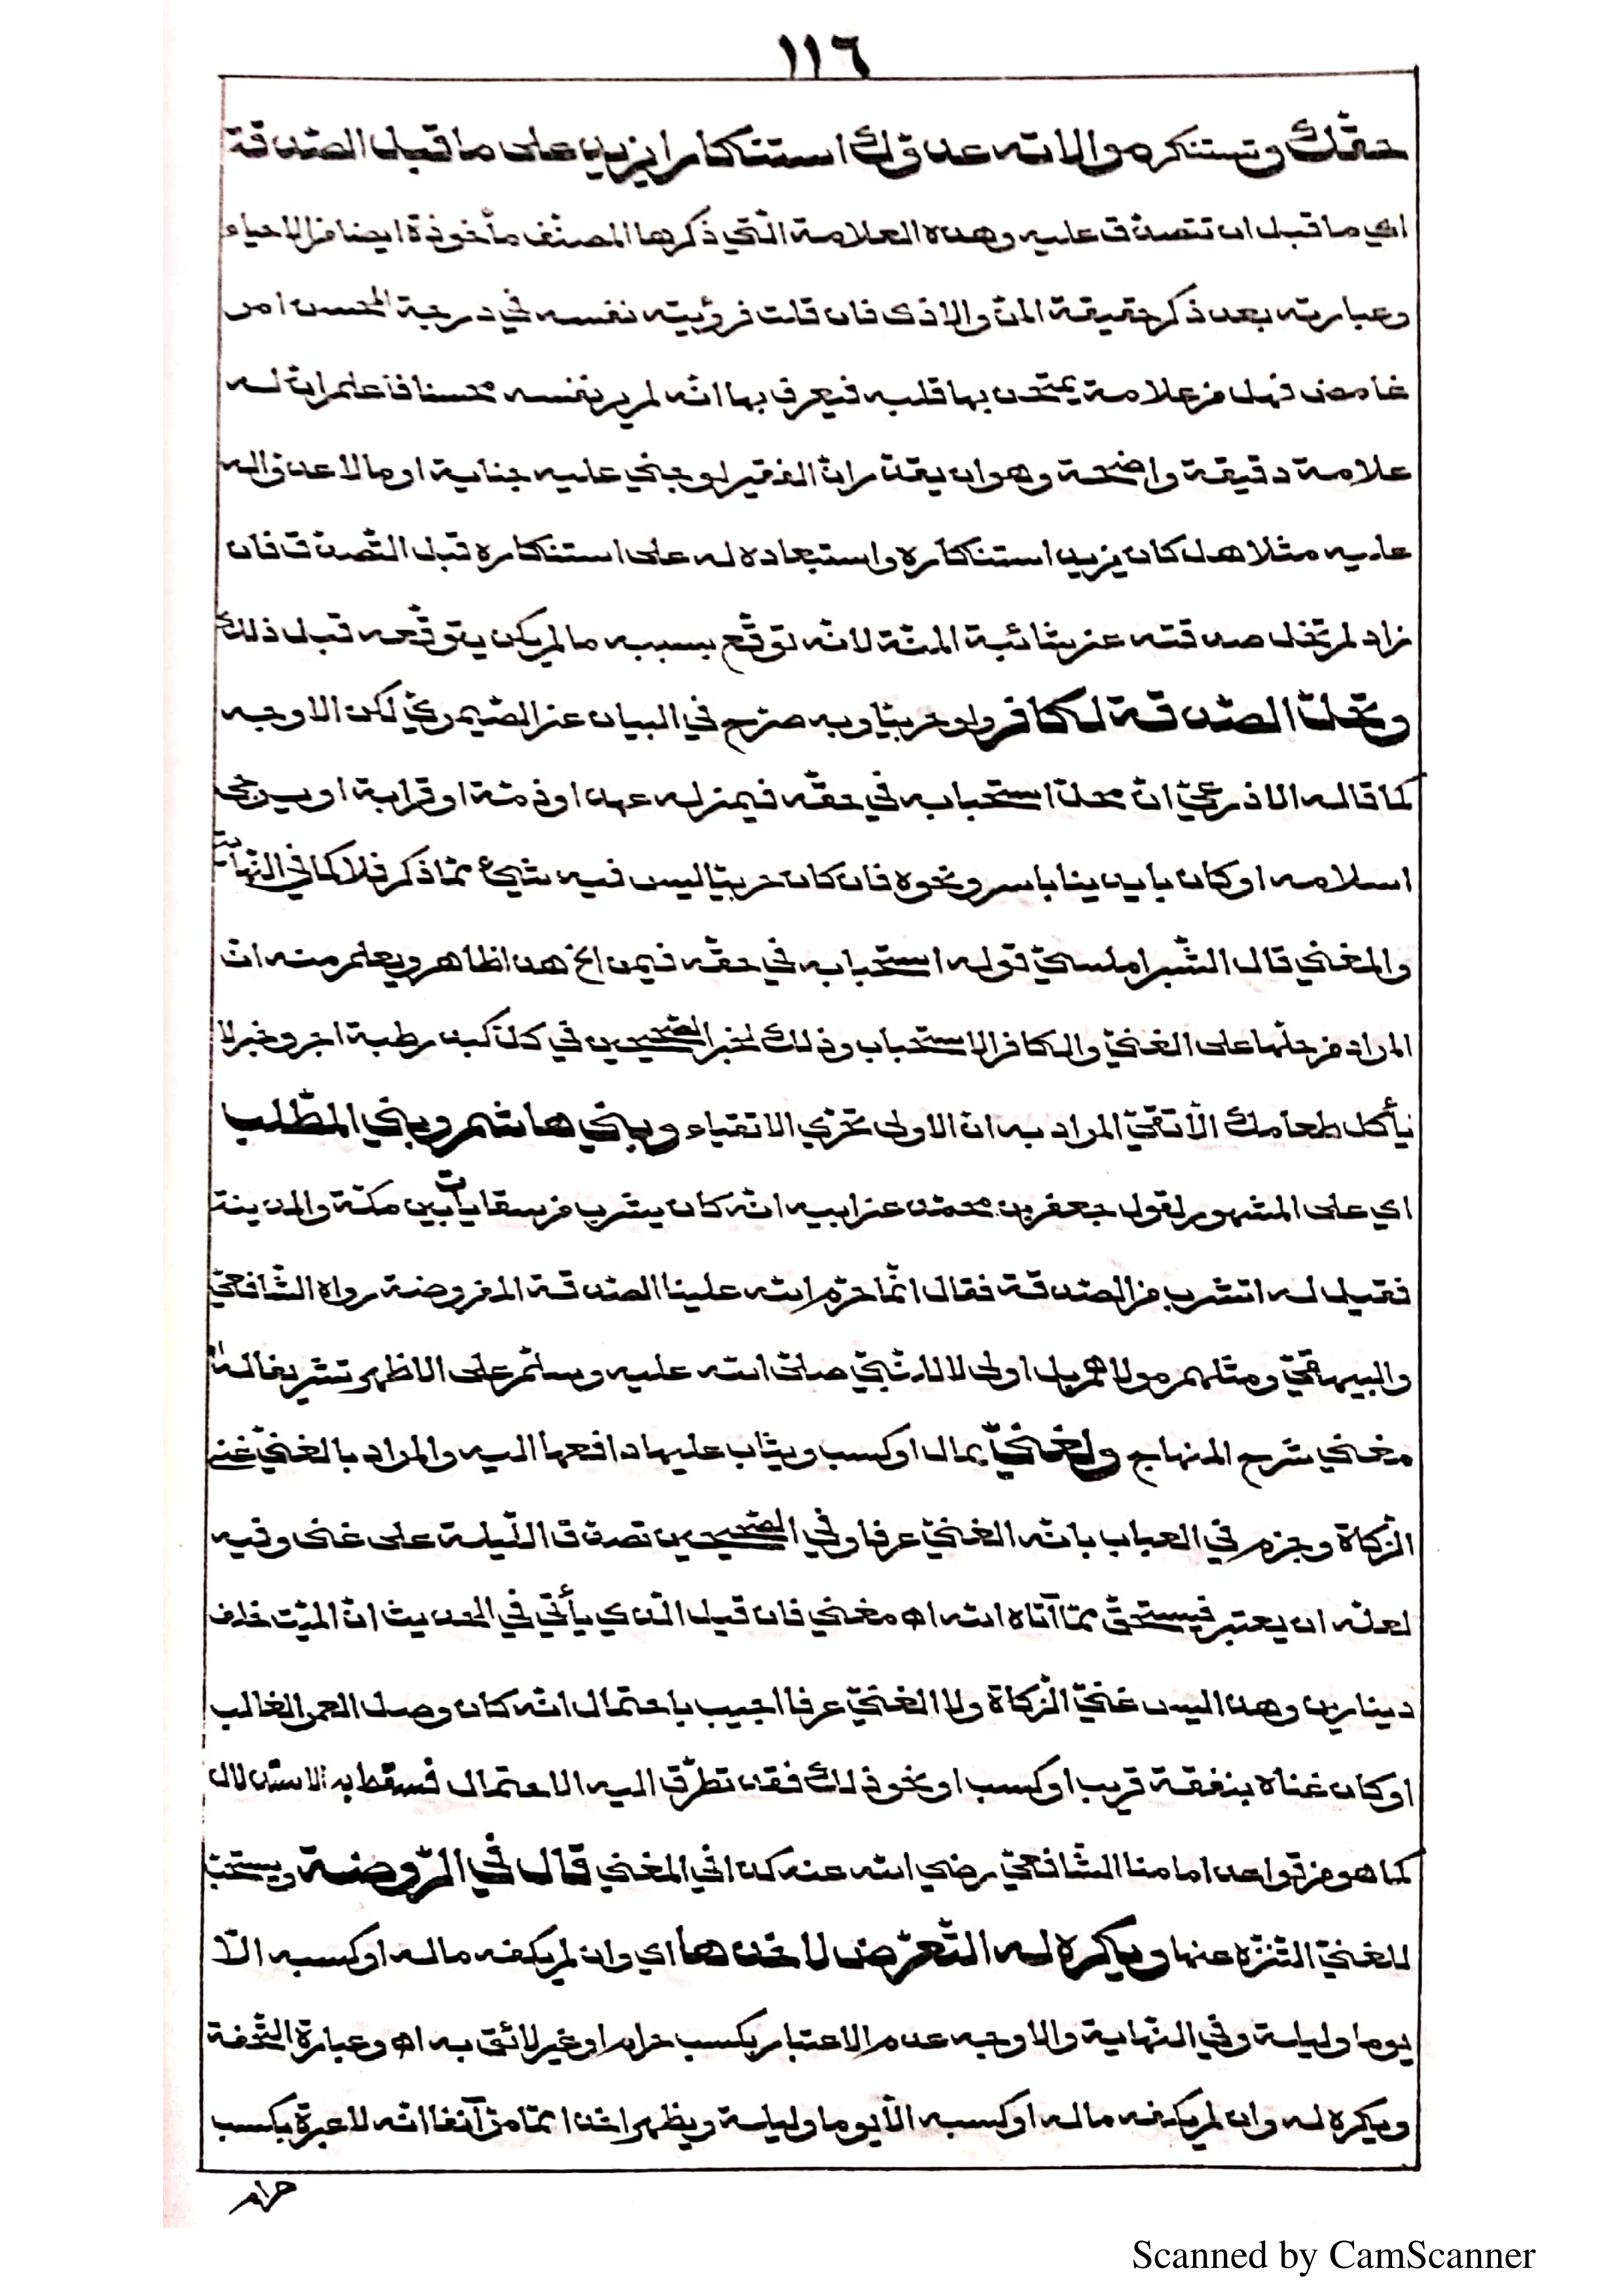 ١١٦
حقّك وتستنكره موالاته عدوّك استنكارا يزيد على ما قبل الصّدقة
اي ما قبل ان تتصدّق عليه وهذه العلامة الّتي ذكرها المصنّف مأخوذة ايضا من الاحياء
وعبارته بعد ذكر حقيقة المنّ والاذى فان قلت فرؤيته نفسه في درجة المحسن امر
غامض فهل من علامة يمتحن بها قلبه فيعرف بها انّه لم ير نفسه محسنا فاعلم انّ له
علامة دقيقة واضحة وهو ان يقدّر انّ الفقير لو جنى عليه جناية او مالا عدوّا له
عليه مثلا هل كان يزيد استنكاره واستبعاده له على استنكاره قبل التّصدّق فان
زاد لم تخل صدقته عن شائبة المنّة لانّه توقّع بسببه ما لم يكن يتوقّعه قبل ذلك
وتحلّ الصّدقة لكافر ولو حربيّا وبه صرّح في البيان عن الصّيمريّ لكن الاوجه
كما قاله الاذرعيّ انّ محلّ استحبابه في حقّه فيمن له عهد او ذمّة او قرابة او يرجى
اسلامه او كان بايدينا باسر ونحوه فان كان حربيّا ليس فيه شيئ ممّا ذكر فلا كما في النّهاية
والمغني قال الشّبراملسيّ قوله استحبابه في حقّه فيمن الخ هذا ظاهر ويعلم منه انّ
المراد من حلّها على الغنيّ والكافر الاستحباب وذلك لخبر الصّحيحين في كلّ كبد رطبة اجر وخبر لا
يأكل طعامك الّا تقيّ المراد به انّ الاولى تحرّي الاتقياء وبني هاشم وبني المطّلب
اي على المشهور لقول جعفر بن محمّد عن ابيه انّه كان يشرب من سقايات بين مكّة والمدينة
فقيل له اتشرب من الصّدقة فقال انّما حرّم الله علينا الصّدقة المفروضة رواه الشّافعيّ
والبيهقيّ ومثلهم مولاهم بل اولى لا للنّبيّ صلّى الله عليه وسلّم على الاظهر تشريفا له اه
مغني شرح المنهاج ولغنيّ بمال او كسب ويثاب عليها دافعها اليه والمراد بالغنيّ غنيّ
الزّكاة وجزم في العباب بانّه الغنيّ عرفا وفي الصّحيحين تصدّق اللّيلة على غنى وفيه
لعلّه ان يعتبر فيستحقّ ممّا آتاه الله اه مغني فان قيل الّذي يأتي في الحديث انّ الميّت خلف
دينارين وهذا ليس غنيّ الزّكاة ولا الغنيّ عرفا اجيب باحتمال انّه كان وصل العمر الغالب
او كان غناه بنفقة قريب او كسب او نحو ذلك فقد تطرّق اليه الاحتمال فسقط به الاستدلال
كما هو من قواعد امامنا الشّافعيّ رضي الله عنه كذا في المغني قال في الرّوضة ويستحبّ
للغنيّ التّنزّه عنها ويكره له التّعرّض لاخذها اي وان لم يكفه ماله او كسبه الّا
يوما وليلة وفي النّهاية والاوجه عدم الاعتبار بكسب حرام او غير لائق به اه وعبارة التّحفة
ويكره له وان لم يكفه ماله او كسبه الّا يوما وليلة ويظهر اخذا ممّا مرّ آنفا انّه لا عبرة بكسب
حرام
Scanned by CamScanner